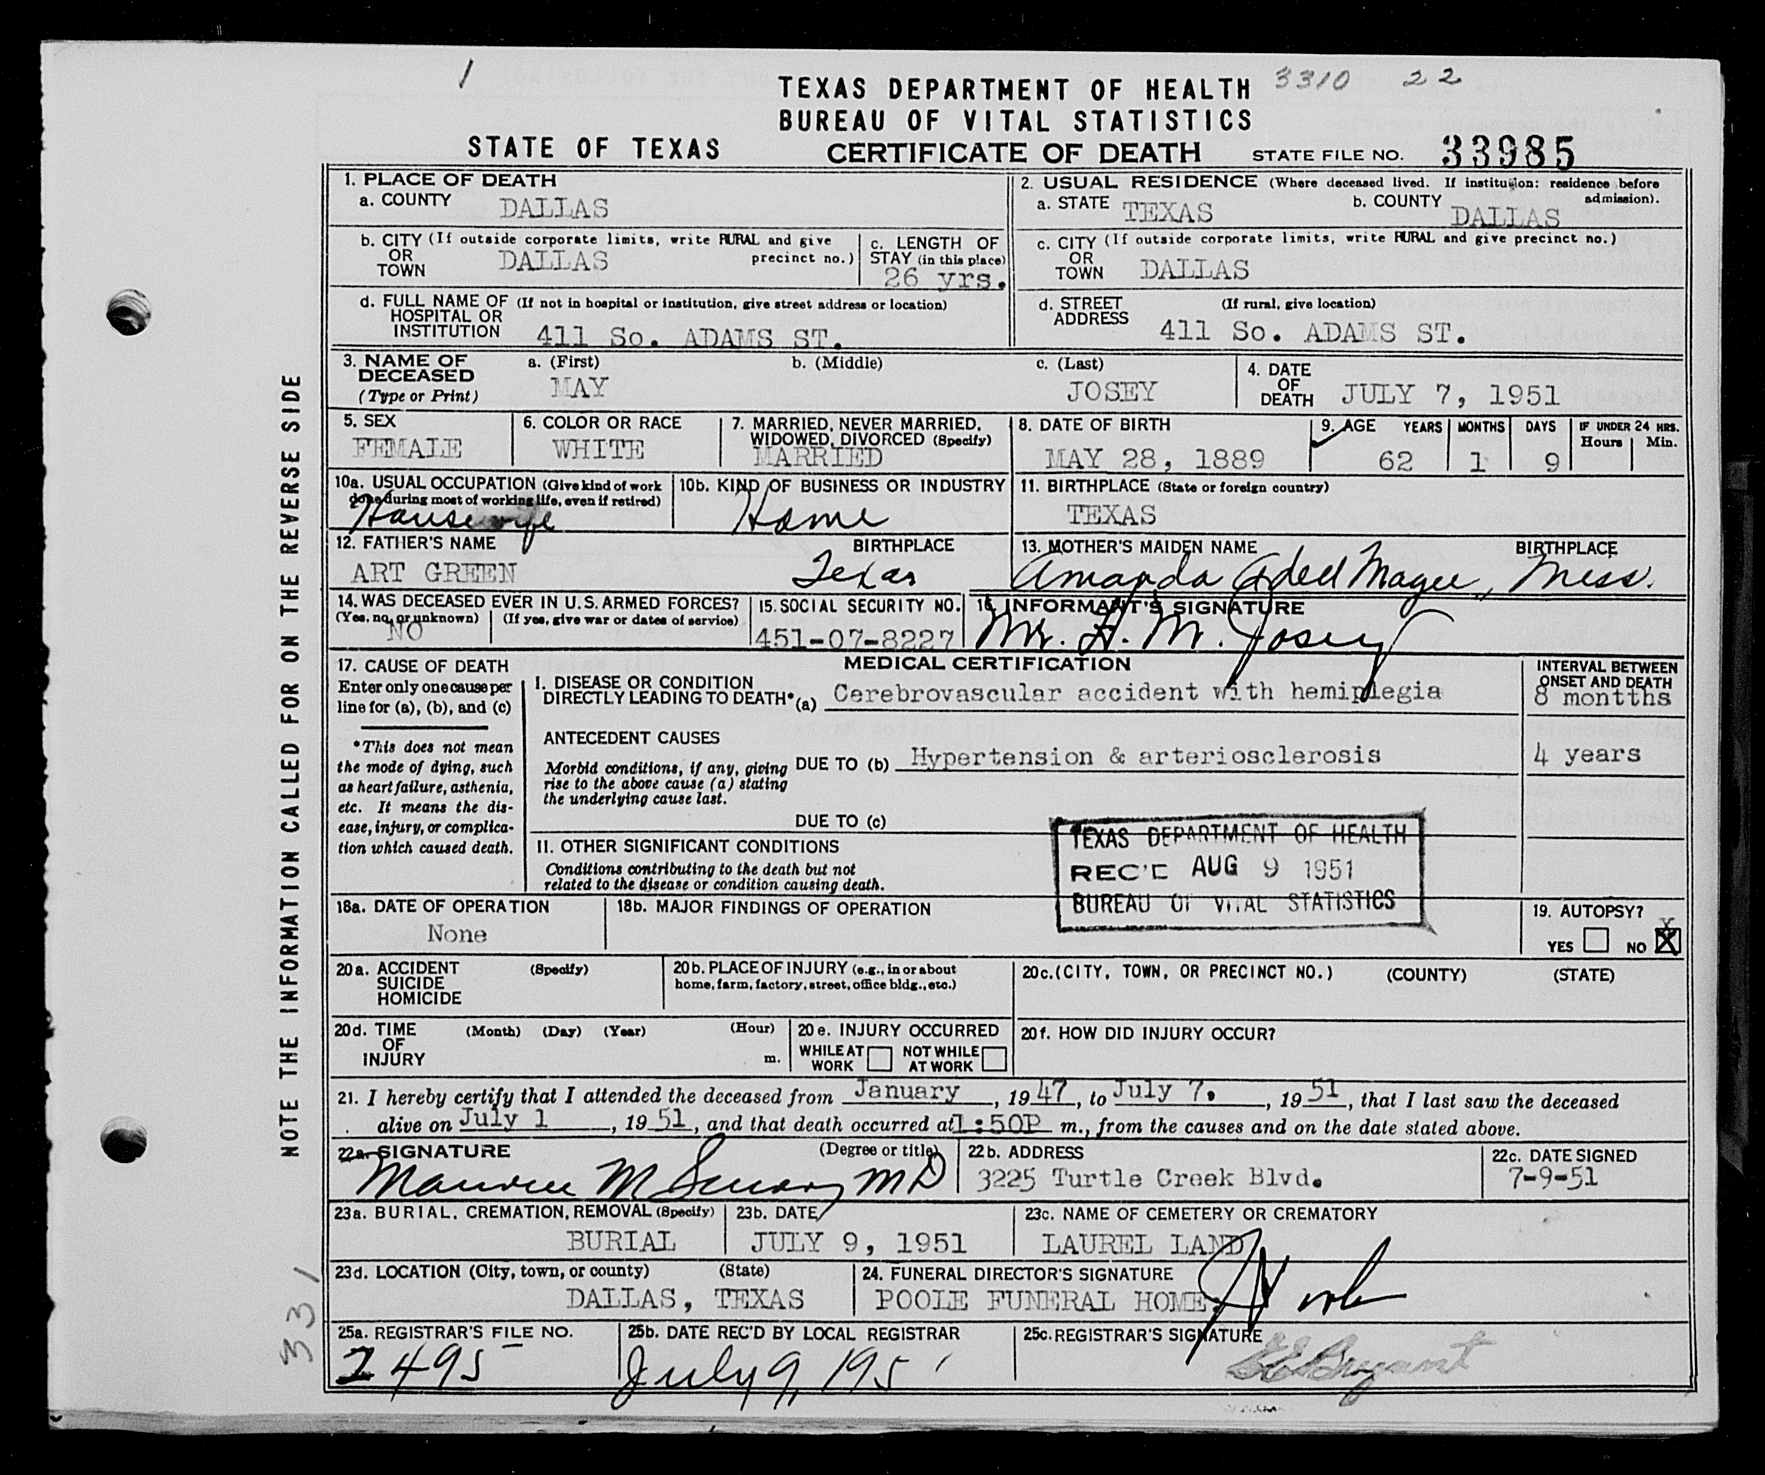 1
TEXAS DEPARTMENT OF HEALTH 3310 22
BUREAU OF VITAL STATISTICS
STATE OF TEXAS CERTIFICATE OF DEATH STATE FILE NO. 33985
NOTE THE INFORMATION CALLED FOR ON THE REVERSE SIDE
331
1. PLACE OF DEATH
a. COUNTY DALLAS
2. USUAL RESIDENCE (Where deceased lived. If institution: residence before admission).
a. STATE TEXAS b. COUNTY DALLAS
b. CITY OR TOWN (If outside corporate limits, write RURAL and give precinct no.) DALLAS
c. LENGTH OF STAY (in this place) 26 yrs.
c. CITY OR TOWN (If outside corporate limits, write RURAL and give precinct no.) DALLAS
d. FULL NAME OF HOSPITAL OR INSTITUTION (If not in hospital or institution, give street address or location) 411 So. ADAMS ST.
d. STREET ADDRESS (If rural, give location) 411 So. ADAMS ST.
3. NAME OF DECEASED (Type or Print) a. (First) MAY b. (Middle) c. (Last) JOSEY
4. DATE OF DEATH JULY 7, 1951
5. SEX FEMALE
6. COLOR OR RACE WHITE
7. MARRIED, NEVER MARRIED, WIDOWED, DIVORCED (Specify) MARRIED
8. DATE OF BIRTH MAY 28, 1889
9. AGE YEARS 62 MONTHS 1 DAYS 9 IF UNDER 24 HRS. Hours Min.
10a. USUAL OCCUPATION (Give kind of work done during most of working life, even if retired) Housewife
10b. KIND OF BUSINESS OR INDUSTRY Home
11. BIRTHPLACE (State or foreign country) TEXAS
12. FATHER'S NAME ART GREEN BIRTHPLACE Texas
13. MOTHER'S MAIDEN NAME Amanda Odell Magee, BIRTHPLACE Miss.
14. WAS DECEASED EVER IN U.S. ARMED FORCES? (Yes, no, or unknown) NO (If yes, give war or dates of service)
15. SOCIAL SECURITY NO. 451-07-8227
16. INFORMANT'S SIGNATURE Mr. H. M. Josey
17. CAUSE OF DEATH
Enter only one cause per line for (a), (b), and (c)
*This does not mean the mode of dying, such as heart failure, asthenia, etc. It means the disease, injury, or complication which caused death.
MEDICAL CERTIFICATION
INTERVAL BETWEEN ONSET AND DEATH
I. DISEASE OR CONDITION DIRECTLY LEADING TO DEATH* (a) Cerebrovascular accident with hemiplegia 8 montths
ANTECEDENT CAUSES
Morbid conditions, if any, giving rise to the above cause (a) stating the underlying cause last.
DUE TO (b) Hypertension & arteriosclerosis 4 years
DUE TO (c)
II. OTHER SIGNIFICANT CONDITIONS
Conditions contributing to the death but not related to the disease or condition causing death.
TEXAS DEPARTMENT OF HEALTH
REC'D AUG 9 1951
BUREAU OF VITAL STATISTICS
18a. DATE OF OPERATION None
18b. MAJOR FINDINGS OF OPERATION
19. AUTOPSY? YES NO X
20a. ACCIDENT SUICIDE HOMICIDE (Specify)
20b. PLACE OF INJURY (e.g., in or about home, farm, factory, street, office bldg., etc.)
20c. (CITY, TOWN, OR PRECINCT NO.) (COUNTY) (STATE)
20d. TIME OF INJURY (Month) (Day) (Year) (Hour) m.
20e. INJURY OCCURRED WHILE AT WORK NOT WHILE AT WORK
20f. HOW DID INJURY OCCUR?
21. I hereby certify that I attended the deceased from January, 1947, to July 7., 1951, that I last saw the deceased
alive on July 1, 1951, and that death occurred at 1:50P m., from the causes and on the date stated above.
22a. SIGNATURE (Degree or title) M MD
22b. ADDRESS 3225 Turtle Creek Blvd.
22c. DATE SIGNED 7-9-51
23a. BURIAL, CREMATION, REMOVAL (Specify) BURIAL
23b. DATE JULY 9, 1951
23c. NAME OF CEMETERY OR CREMATORY LAUREL LAND
23d. LOCATION (City, town, or county) (State) DALLAS, TEXAS
24. FUNERAL DIRECTOR'S SIGNATURE POOLE FUNERAL HOME
25a. REGISTRAR'S FILE NO. 2495
25b. DATE REC'D BY LOCAL REGISTRAR July 9, 195
25c. REGISTRAR'S SIGNATURE Bryant